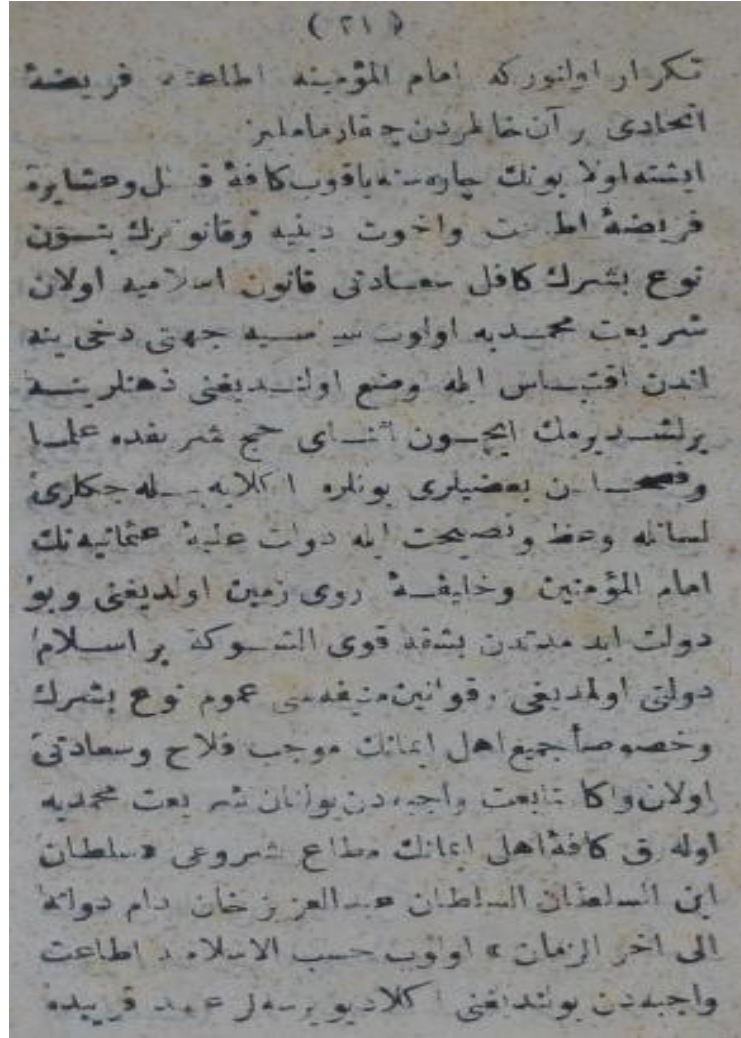 ( ٢١ )
تكرار اولنور كه امام المؤمينه اطاعت فريضهٔ
اتحادى بر آن خاطردن چقارماملیز
ايشته اولا بونك چاره سنه باقوب كافهٔ قبائل وعشايرة
فريضهٔ اطاعت واخوت دينيه وقانونرك بتون
نوع بشرك كافل سعادتى قانون اسلاميه اولان
شريعت محمديه اولوب سياسيه جهتى دخى ينه
اندن اقتباس ايله وضع اولنديغنى ذهنلرينه
يرلشديرمك ايچون اثناى حج شريفده علما
وفصحادن بعضيلرى بونلره اكلايه بيله جكلرى
لسانله وعظ ونصيحت ايله دولت عليهٔ عثمانيه نك
امام المؤمنين وخليفهٔ روى زمين اولديغنى وبو
دولت ابد مدتدن بشقه قوى الشوكة بر اسلام
دولتى اولمديغى قوانين منيفه سى عموم نوع بشرك
وخصوصاً جميع اهل ايمانك موجب فلاح وسعادتى
اولان واكا متابعت واجبه دن بولنان شريعت محمديه
اوله رق كافهٔ اهل ايمانك مطاع مشروعى «سلطان
ابن السلطان السلطان عبدالعزيز خان دام دولته
الى اخر الزمان» اولوب حسب الاسلاميه اطاعت
واجبه دن بولنديغنى اكلاديويرسه لر عهد قريبده